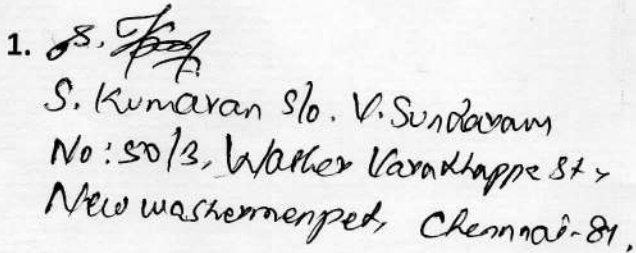 1. S.
S. Kumaran S/o. V. Sundaram
No: 50/3, Washer Varathappa St,
New washermenpet, Chennai-81.